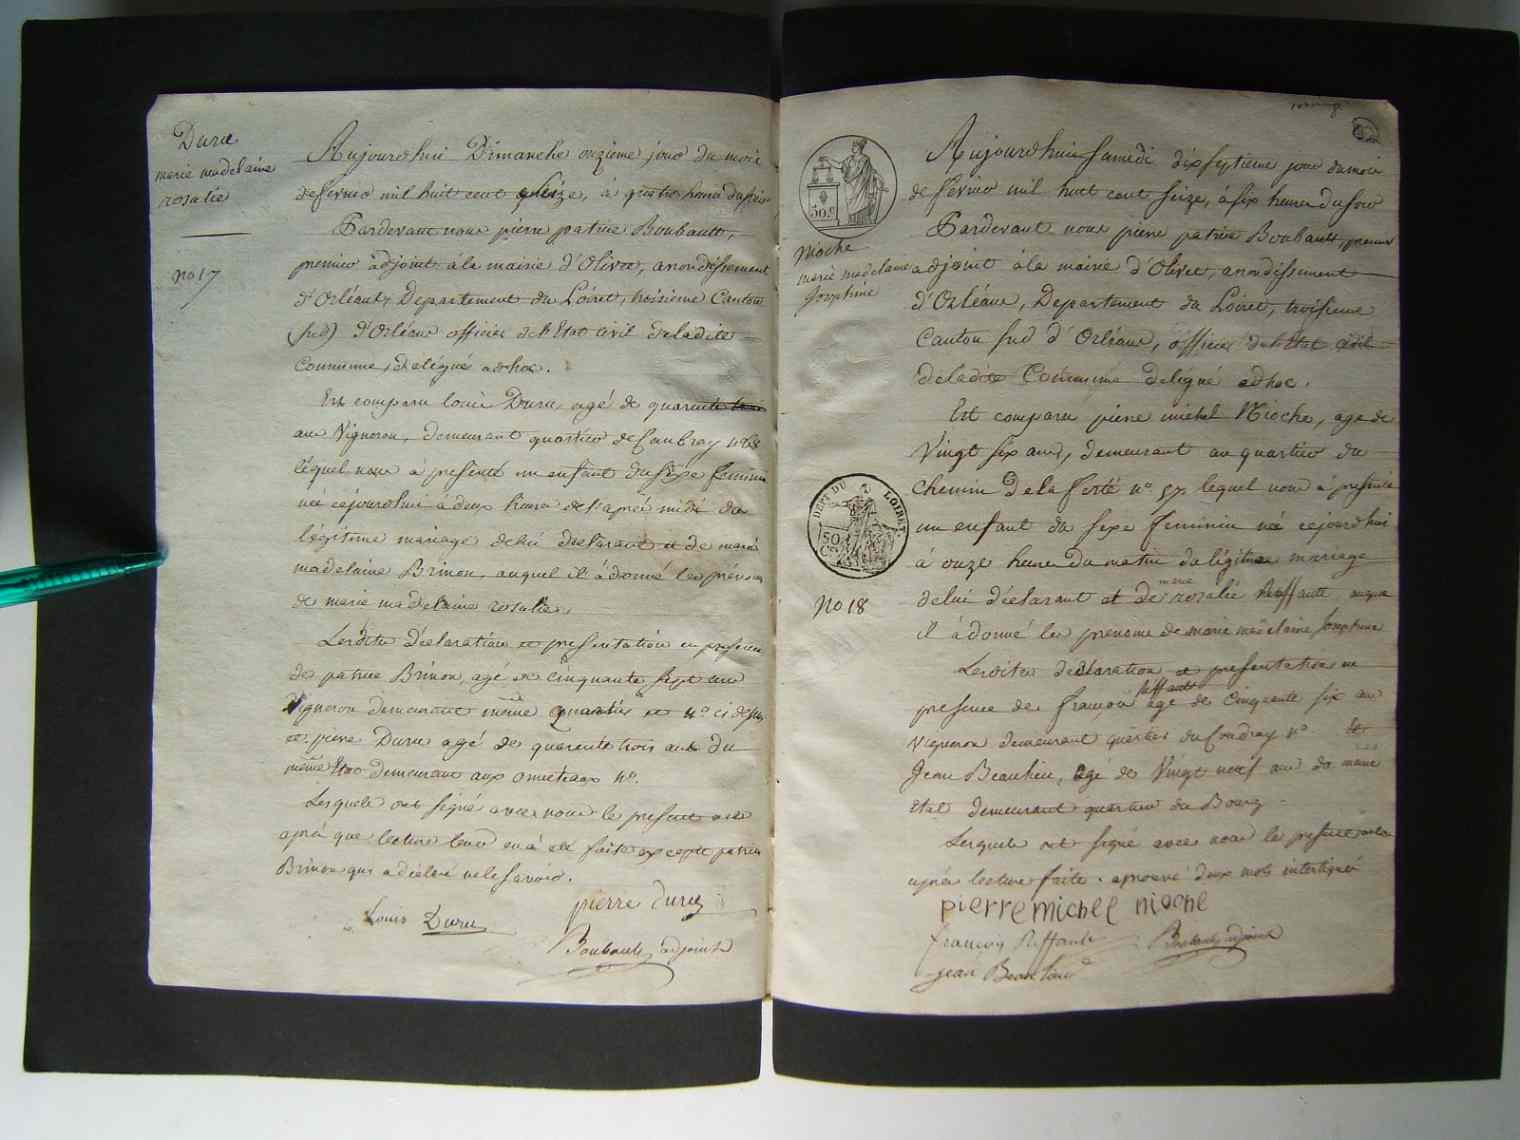 Duru
marie madelaine
rosalie
no 17
Aujourdhui Dimanche onzieme jour du mois
de fevrier mil huit cent seize, à quatre heures du soir
Pardevant nous pierre patrice Boubault,
premier adjoint à la mairie d'Olivet, arondissement
d'Orléans, Departement du Loiret, troisieme Canton
(sud) d'Orléans officier de l'Etat Civil de ladite
Commune, délégué adhoc.
Est comparu louis Duru, agé de quarente
ans Vigneron, demeurant quartier de Caubray n° 68
lequel nous à presenté un enfant du sexe feminin
né cejourdhui à deux heures de l'après midi du
légitime mariage de lui declarant et de marie
madelaine Brinon, auquel il à donné les prénoms
de marie madelaine rosalie.
Lesdites déclaration et presentation en presence
de patrice Brinon, agé de cinquante sept ans
Vigneron demeurant même quartier et n° ci dessus
et pierre Duru agé de quarente trois ans du
même Etat demeurant aux omuteaux n°.
Lesquels ont signé avec nous le present acte
après que lecture leur en à été faite excepté patrice
Brinon qui a déclaré ne le savoir.
pierre duru
Louis Duru
Boubault adjoint
50 c
Nioche
marie madelaine
Josephine
DEPT DU LOIRET
50 C
no 18
Aujourdhui samedi dixseptieme jour du mois
de fevrier mil huit cent seize, à six heures du soir
Pardevant nous pierre patrice Boubault, premier
adjoint à la mairie d'Olivet, arondissement
d'Orléans, Departement du Loiret, troisieme
Canton sud d'Orléans, officier de l'Etat civil
de ladite Commune delégué adhoc.
Est comparu pierre michel Nioche, age de
Vingt six ans, demeurant au quartier du
chemin de la ferté n° 57 lequel nous à presenté
un enfant du sexe feminin né cejourdhui
à onze heures du matin du légitime mariage
marie
de lui déclarant et de rosalie Reffaute, auquel
il à donné les prenoms de marie madelaine Josephine
Lesdites declaration et presentation en
reffaute
presence de françois agé de cinquante six ans
vigneron demeurant quartier du Coudray n° et
Jean Beaulieu, agé de Vingt neuf ans du même
etat demeurant quartier du Bourg
Lesquels ont signé avec nous le present acte
après lecture faite. aprouvé deux mots interligné
pierre michel nioche
françois Reffaute Boubault adjoint
jean